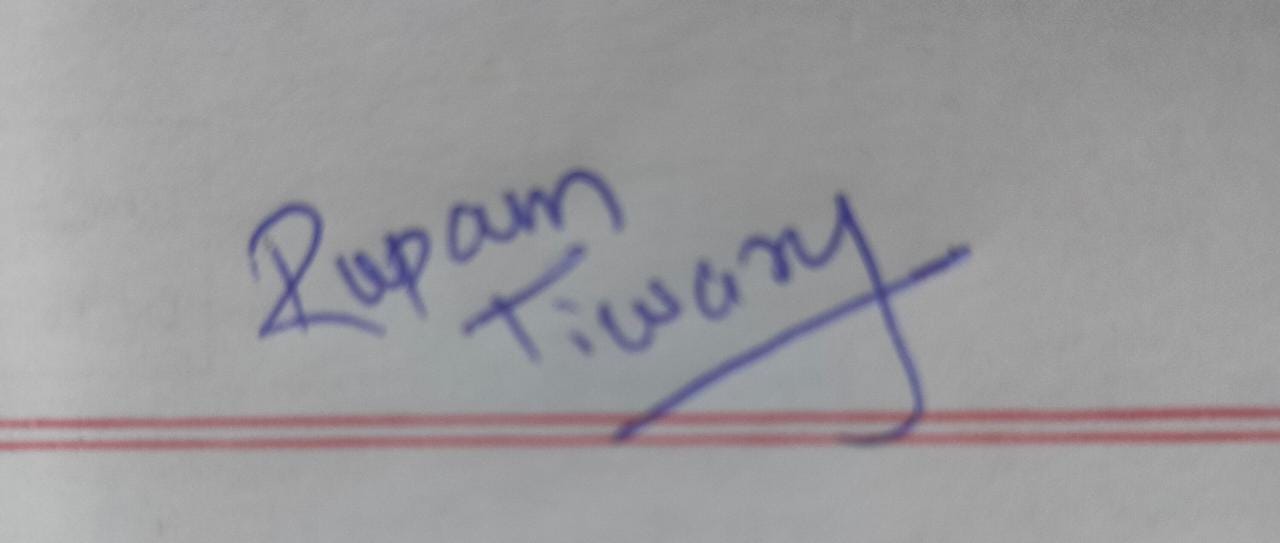 Rupam
Tiwary